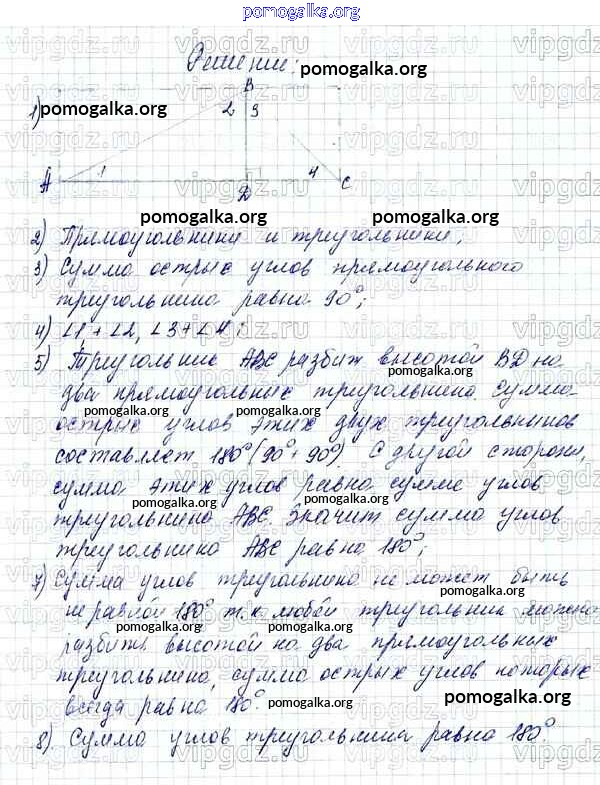 pomogalka.org
Решение: pomogalka.org
B
1) pomogalka.org 2 3
A 1 4
D C
pomogalka.org pomogalka.org
2) Прямоугольники и треугольники;
3) Сумма острых углов прямоугольного
треугольника равна 90°;
4) ∠1+∠2, ∠3+∠4;
pomogalka.org pomogalka.org
5) Треугольник ABC разбит высотой BD на
два прямоугольных треугольника. Сумма
pomogalka.org pomogalka.org
острых углов этих двух треугольников
составляет 180° (90°+90°). С другой стороны,
pomogalka.org
сумма этих углов равна сумме углов
pomogalka.org pomogalka.org
треугольника ABC. Значит сумма углов
треугольника ABC равна 180°;
pomogalka.org
7) Сумма углов треугольника не может быть
не равной 180° т.к. любой треугольник можно
pomogalka.org pomogalka.org
разбить высотой на два прямоугольных
треугольника, сумма острых углов которых
pomogalka.org
всегда равна 180°.
pomogalka.org
8). Сумма углов треугольника равна 180°.